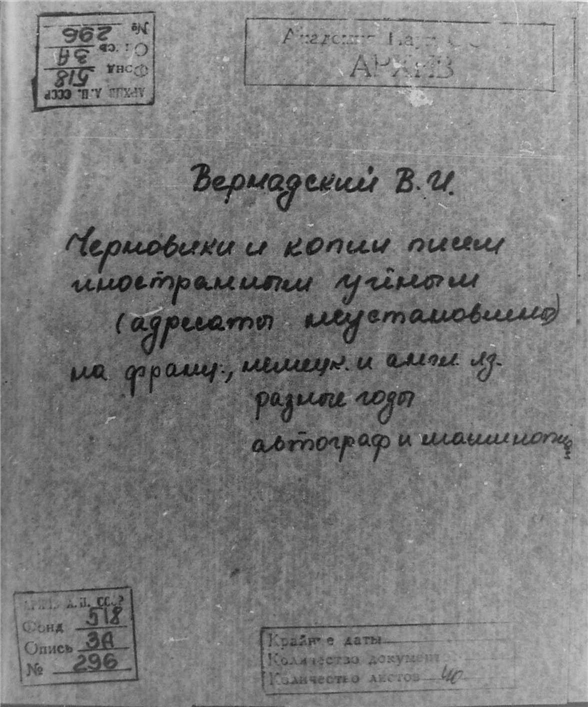 № 296
Опись 3А
Фонд 518
АРХИВ А.Н. СССР
Академия Наук СССР
АРХИВ
Вернадский В.И.
Черновики и копии писем
иностранным учёным
(адресаты неустановлены)
на франц., немецк. и англ. яз.
разные годы
автограф и машинопись
АРХИВ А.Н. СССР
Фонд 518
Опись 3А
№ 296
Крайние даты
Количество документ
Количество листов 40